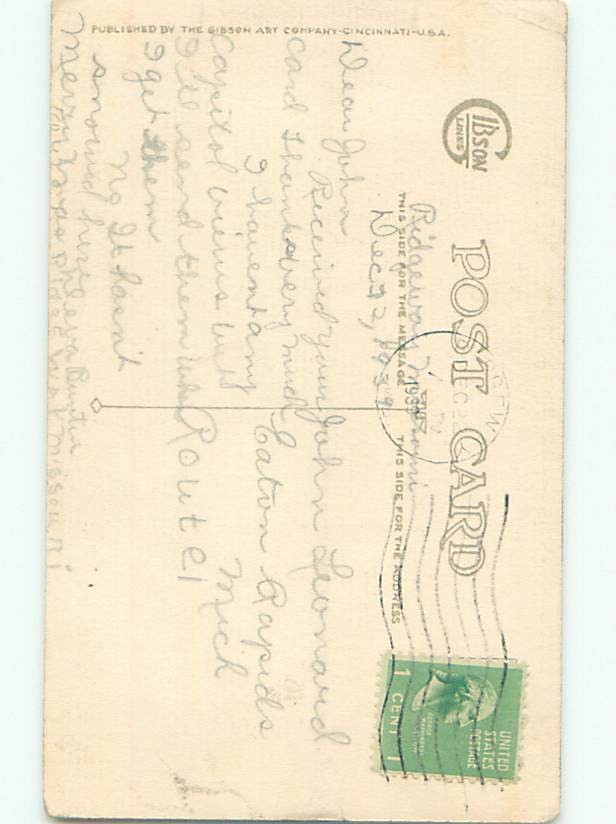 PUBLISHED BY THE GIBSON ART COMPANY-CINCINNATI-U.S.A.
GIBSON
LINES
POST CARD
THIS SIDE FOR THE MESSAGE
THIS SIDE FOR THE ADDRESS
Ridgeway
Dec 22, 1939
Dear John
Received your
card thanks very much
I havent any
Capitol views but
I'll send them when
I get them
No It hasn't
snowed here
Merry Xmas
John Leonard
Eaton Rapids
Mich
Route 1
1939
UNITED
STATES
POSTAGE
GEORGE
WASHINGTON
1 CENT 1